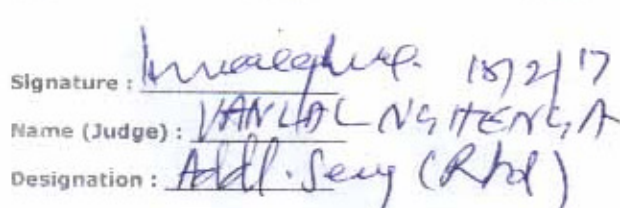 Signature : 18/2/17
Name (Judge) : VANLAL NGHENGA
Designation : Addl. Secy (Rtd)